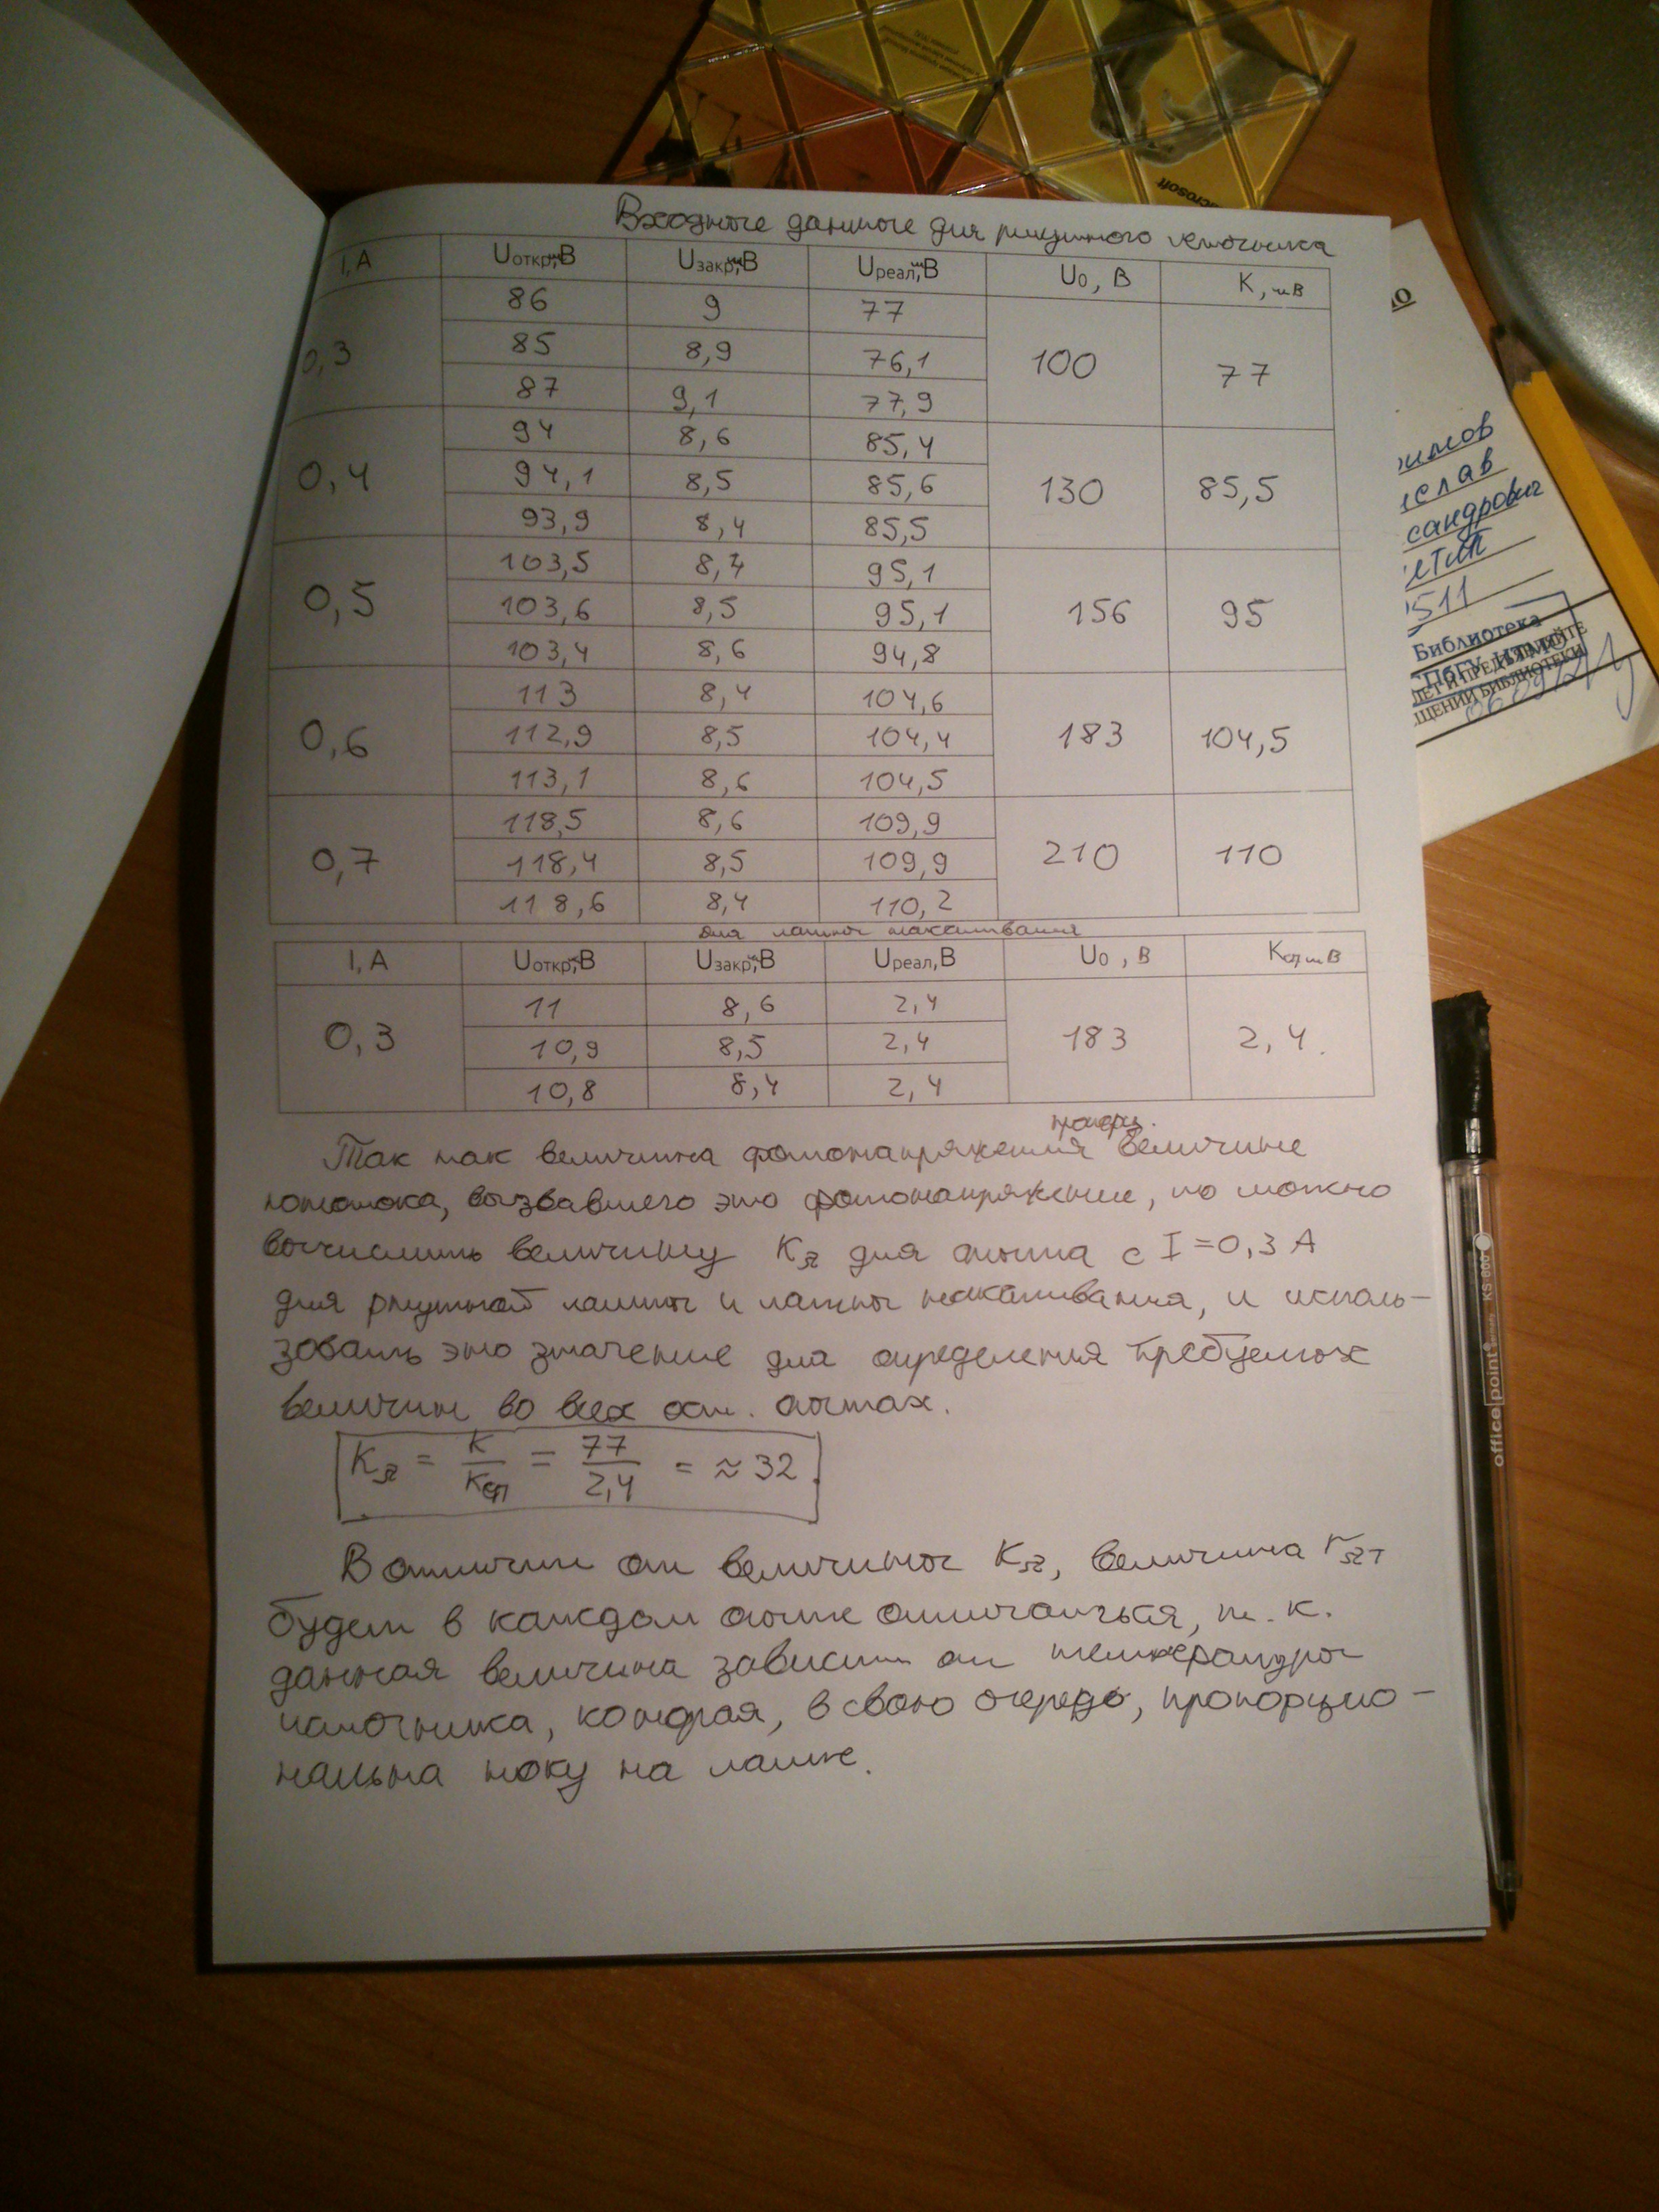 Microsoft
Входные данные для ртутного источника
I, А Uоткр, мВ Uзакр, мВ Uреал, мВ U0, В K, мВ
0,3 86 9 77 100 77
85 8,9 76,1
87 9,1 77,9
0,4 94 8,6 85,4 130 85,5
94,1 8,5 85,6
93,9 8,4 85,5
0,5 103,5 8,4 95,1 156 95
103,6 8,5 95,1
103,4 8,6 94,8
0,6 113 8,4 104,6 183 104,5
112,9 8,5 104,4
113,1 8,6 104,5
0,7 118,5 8,6 109,9 210 110
118,4 8,5 109,9
118,6 8,4 110,2
для лампы накаливания
I, А Uоткр, мВ Uзакр, мВ Uреал, В U0, В Kсп, мВ
0,3 11 8,6 2,4 183 2,4
10,9 8,5 2,4
10,8 8,4 2,4
пропорц.
Так как величина фотонапряжения величине
потока, вызвавшего это фотонапряжение, то можно
вычислить величину KЯ для опыта с I=0,3 А
для ртутной лампы и лампы накаливания, и исполь-
зовать это значение для определения требуемых
величин во всех ост. опытах.
KЯ = K/Kсп = 77/2,4 = ≈ 32.
В отличии от величины KЯ, величина
будет в каждом опыте отличаться, т. к.
данная величина зависит от температуры
источника, которая, в свою очередь, пропорцио-
нальна току на лампе.
слав
сандрович
511
Библиотека
СПбГУ ИТМО
officepoint KS 800